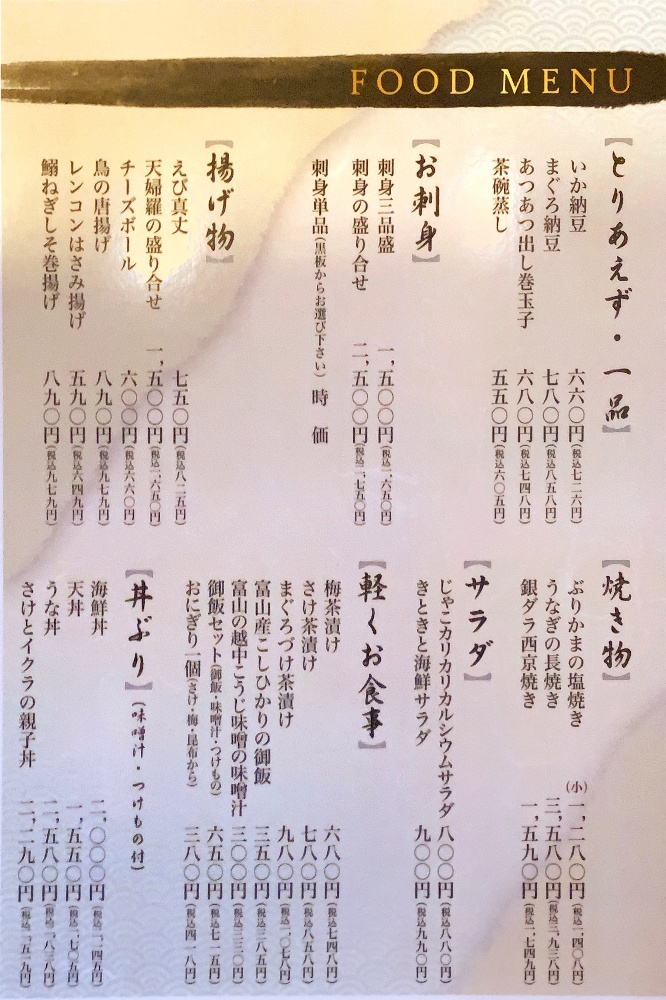 FOOD MENU
【とりあえず・一品】
いか納豆 六六〇円(税込七二六円)
まぐろ納豆 七八〇円(税込八五八円)
あつあつ出し巻玉子 六八〇円(税込七四八円)
茶碗蒸し 五五〇円(税込六〇五円)
【お刺身】
刺身三品盛 一,五〇〇円(税込一,六五〇円)
刺身の盛り合せ 二,五〇〇円(税込二,七五〇円)
刺身単品(黒板からお選び下さい) 時価
【揚げ物】
えび真丈 七五〇円(税込八二五円)
天婦羅の盛り合せ 一,五〇〇円(税込一,六五〇円)
チーズボール 六〇〇円(税込六六〇円)
鳥の唐揚げ 八九〇円(税込九七九円)
レンコンはさみ揚げ 五九〇円(税込六四九円)
鰯ねぎしそ巻揚げ 八九〇円(税込九七九円)
【焼き物】
ぶりかまの塩焼き (小)一,二八〇円(税込一,四〇八円)
うなぎの長焼き 三,五八〇円(税込三,九三八円)
銀ダラ西京焼き 一,五九〇円(税込一,七四九円)
【サラダ】
じゃこカリカリカルシウムサラダ 八〇〇円(税込八八〇円)
きときと海鮮サラダ 九〇〇円(税込九九〇円)
【軽くお食事】
梅茶漬け 六八〇円(税込七四八円)
さけ茶漬け 七八〇円(税込八五八円)
まぐろづけ茶漬け 九八〇円(税込一,〇七八円)
富山産こしひかりの御飯 三五〇円(税込三八五円)
富山の越中こうじ味噌の味噌汁 三〇〇円(税込三三〇円)
御飯セット(御飯・味噌汁・つけもの) 六五〇円(税込七一五円)
おにぎり一個(さけ・梅・昆布から) 三八〇円(税込四一八円)
【丼ぶり】(味噌汁・つけもの付)
海鮮丼 二,〇〇〇円
天丼 一,五五〇円(税込一,七〇五円)
うな丼 二,五八〇円(税込二,八三八円)
さけとイクラの親子丼 二,二九〇円(税込二,五一九円)